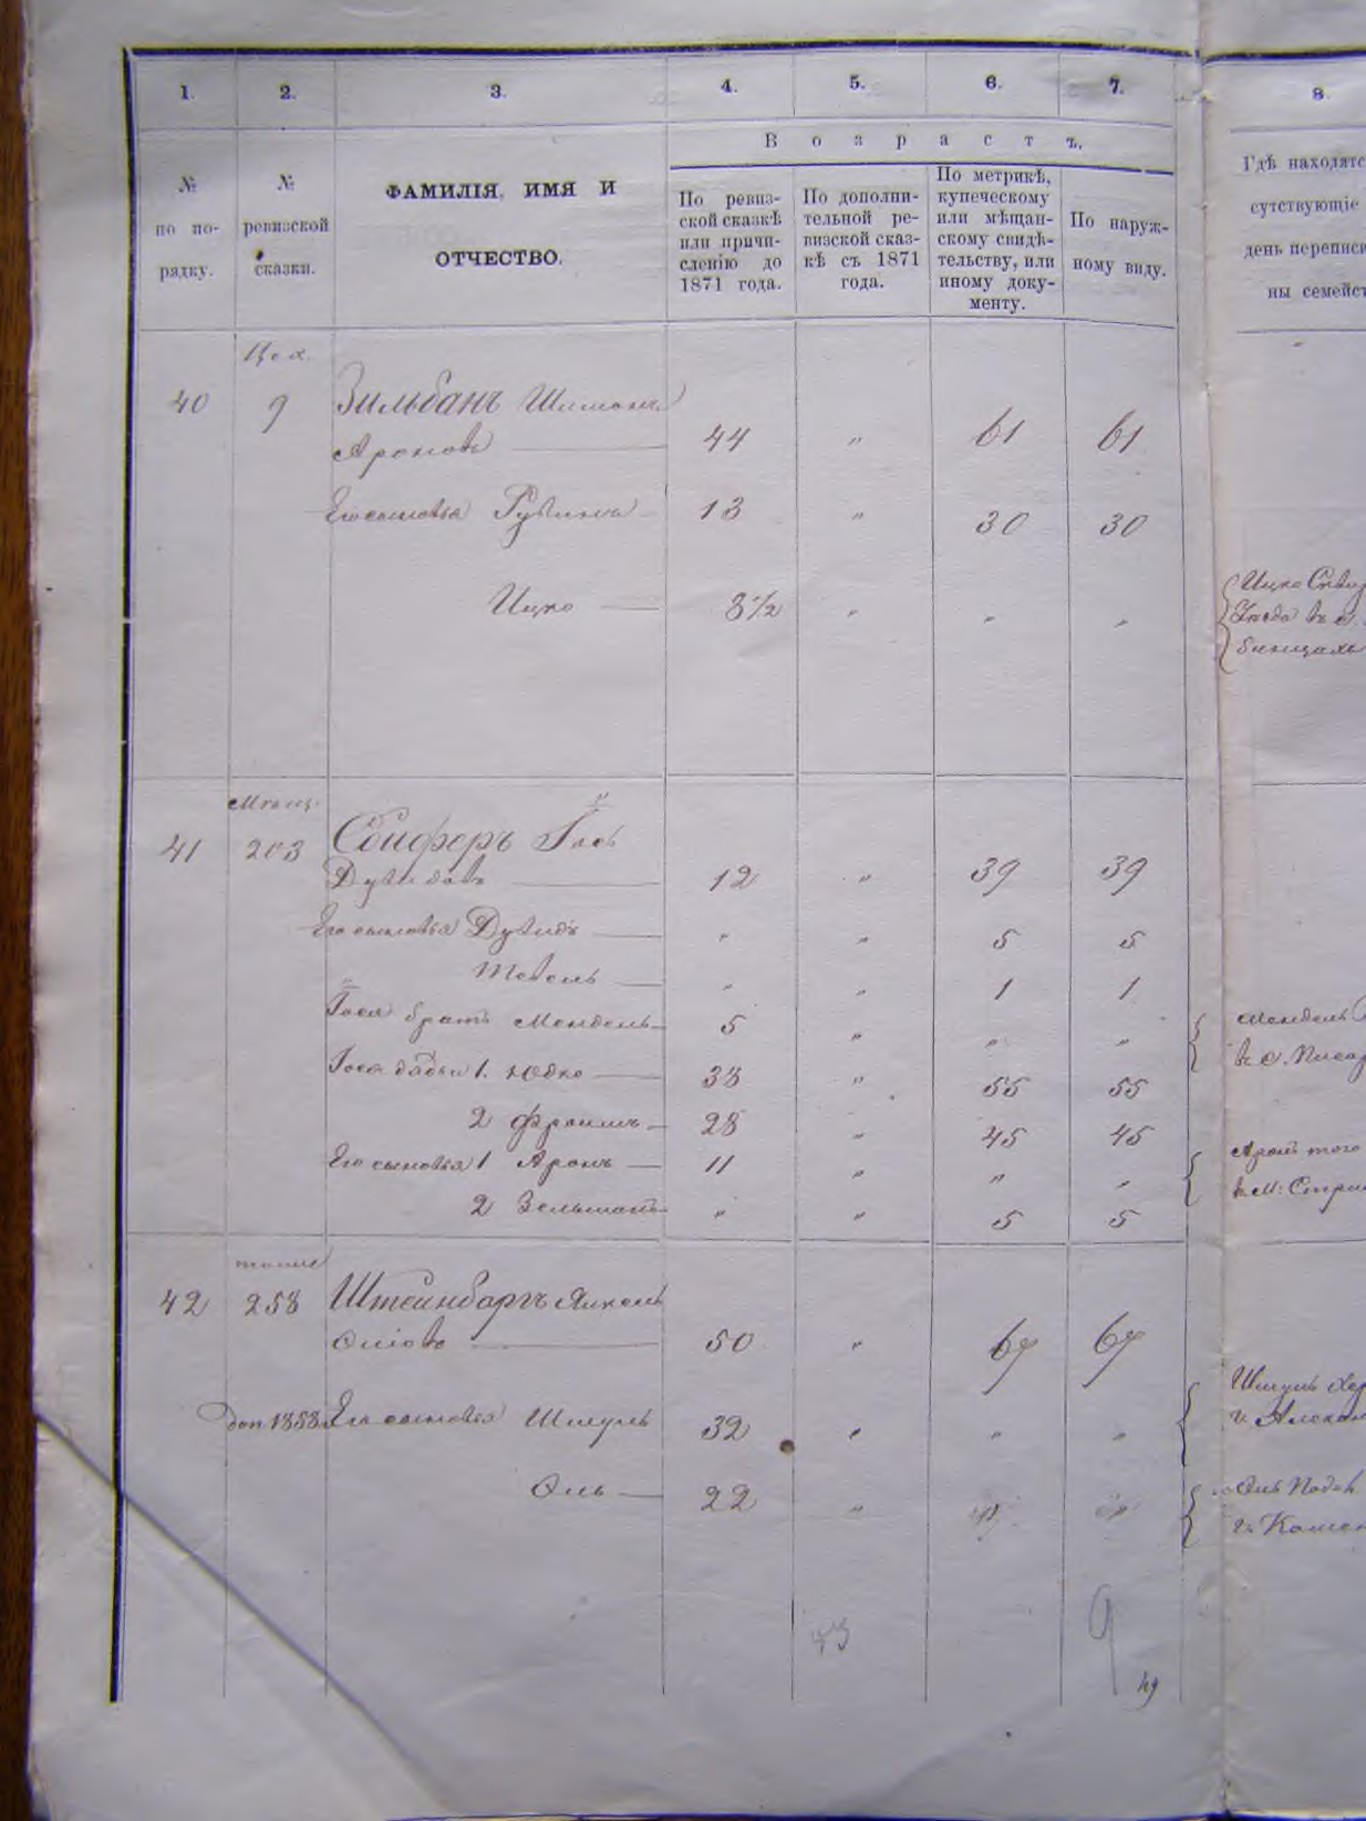 1. 2. 3. 4. 5. 6. 7. 8.
В о з р а с т ъ.
№ по по-рядку.
№ ревизской сказки.
ФАМИЛІЯ, ИМЯ И
ОТЧЕСТВО.
По ревиз-
ской сказкѣ
или причи-
сленію до
1871 года.
По дополни-
тельной ре-
визской сказ-
кѣ съ 1871
года.
По метрикѣ,
купеческому
или мѣщан-
скому свидѣ-
тельству, или
иному доку-
менту.
По наруж-
ному виду.
Гдѣ находятс
сутствующіе
день переписи
ны семейст
40 9 Зильбанъ Шимонъ
Ароновъ 44 " 61 61
Его сыновья Рувинъ 13 " 30 30
Ицко 8½ " " "
Ицко
Мѣщ.
41 203 Сфиферъ Іось
Дувидовъ 12 " 39 39
Его сыновья Дувидъ " " 5 5
Тевель " " 1 1
Іося братъ Мендель 5 " " "
Мендель
Іося дядьи 1. Юдко 38 " 55 55
2 Фроимъ 28 " 45 45
Его сыновья 1 Аронъ 11 " " "
Аронъ того
2 Зельманъ " " 5 5
тоже
42 258 Штейнбаргъ Янкель
Оніовъ 50 " 67 67
доп. 1858 Его сыновья Шмуль 32 " " "
Шмуль
Онь 22 " " "
Онь
43
49